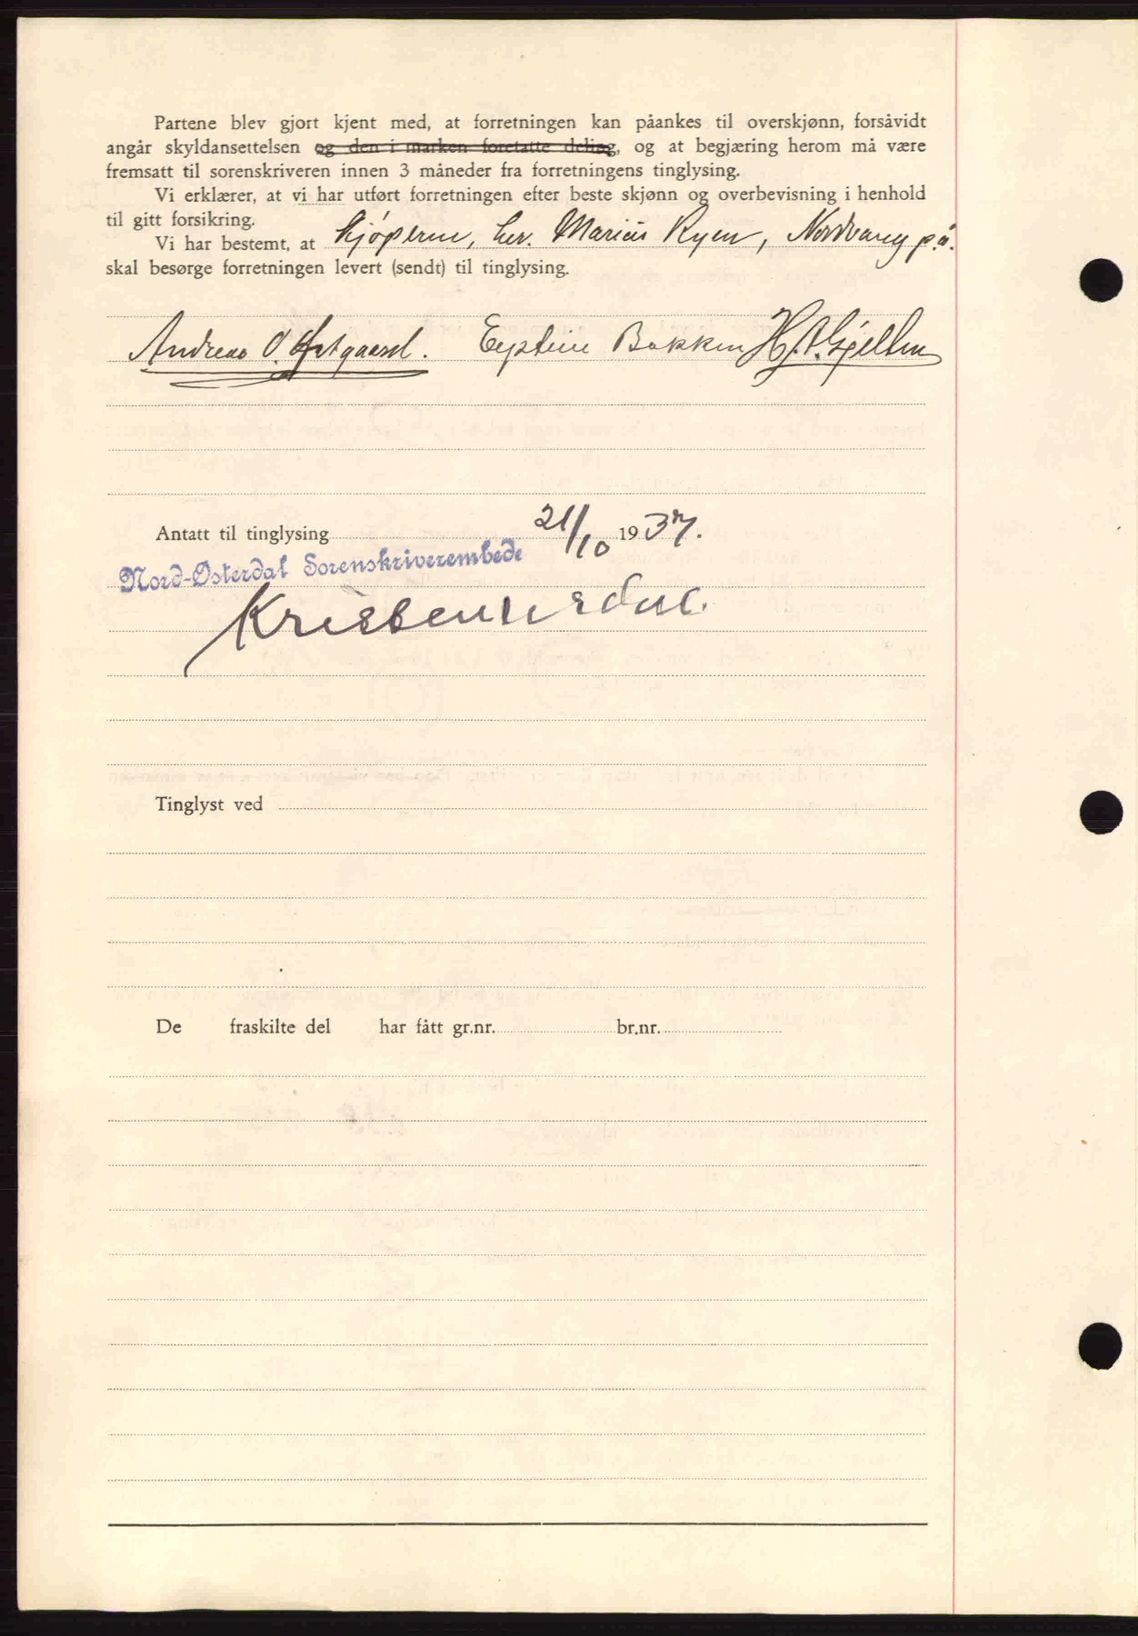 Partene blev gjort kjent med, at forretningen kan påankes til overskjønn, forsåvidt
angår skyldansettelsen og den i marken foretatte deling, og at begjæring herom må være
fremsatt til sorenskriveren innen 3 måneder fra forretningens tinglysing.
Vi erklærer, at vi har utført forretningen efter beste skjønn og overbevisning i henhold
til gitt forsikring.
Vi har bestemt, at kjøperne, hr. Marius Ryen, Nordvang p.å.
skal besørge forretningen levert (sendt) til tinglysing.
Andreas O. Østgaard. Eystein Bakken H. A. Gjelten
Antatt til tinglysing 21/10 1937.
Nord-Østerdal Sorenskriverembede
Tinglyst ved
De fraskilte del har fått gr.nr. br.nr.